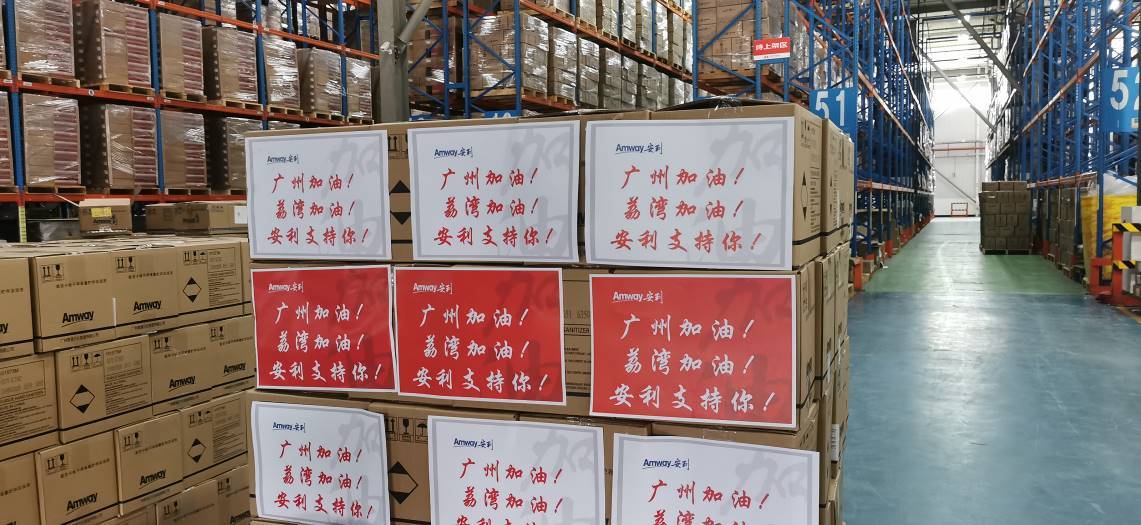 待上架区
51
Amway 安利
加油
广州加油！
荔湾加油！
安利支持你！
Amway 安利
加油
广州加油！
荔湾加油！
安利支持你！
Amway 安利
加油
广州加油！
荔湾加油！
安利支持你！
Amway 安利
加油
广州加油！
荔湾加油！
安利支持你！
Amway 安利
加油
广州加油！
荔湾加油！
安利支持你！
Amway 安利
加油
广州加油！
荔湾加油！
安利支持你！
SANITIZER
Amway 安利
加油
广州加油！
荔湾加油！
安利支持你！
Amway 安利
加油
广州加油！
荔湾加油！
安利支持你！
Amway 安利
加油
广州加油！
荔湾加油！
Amway
Amway
Amway
Amway
Amway
Amway